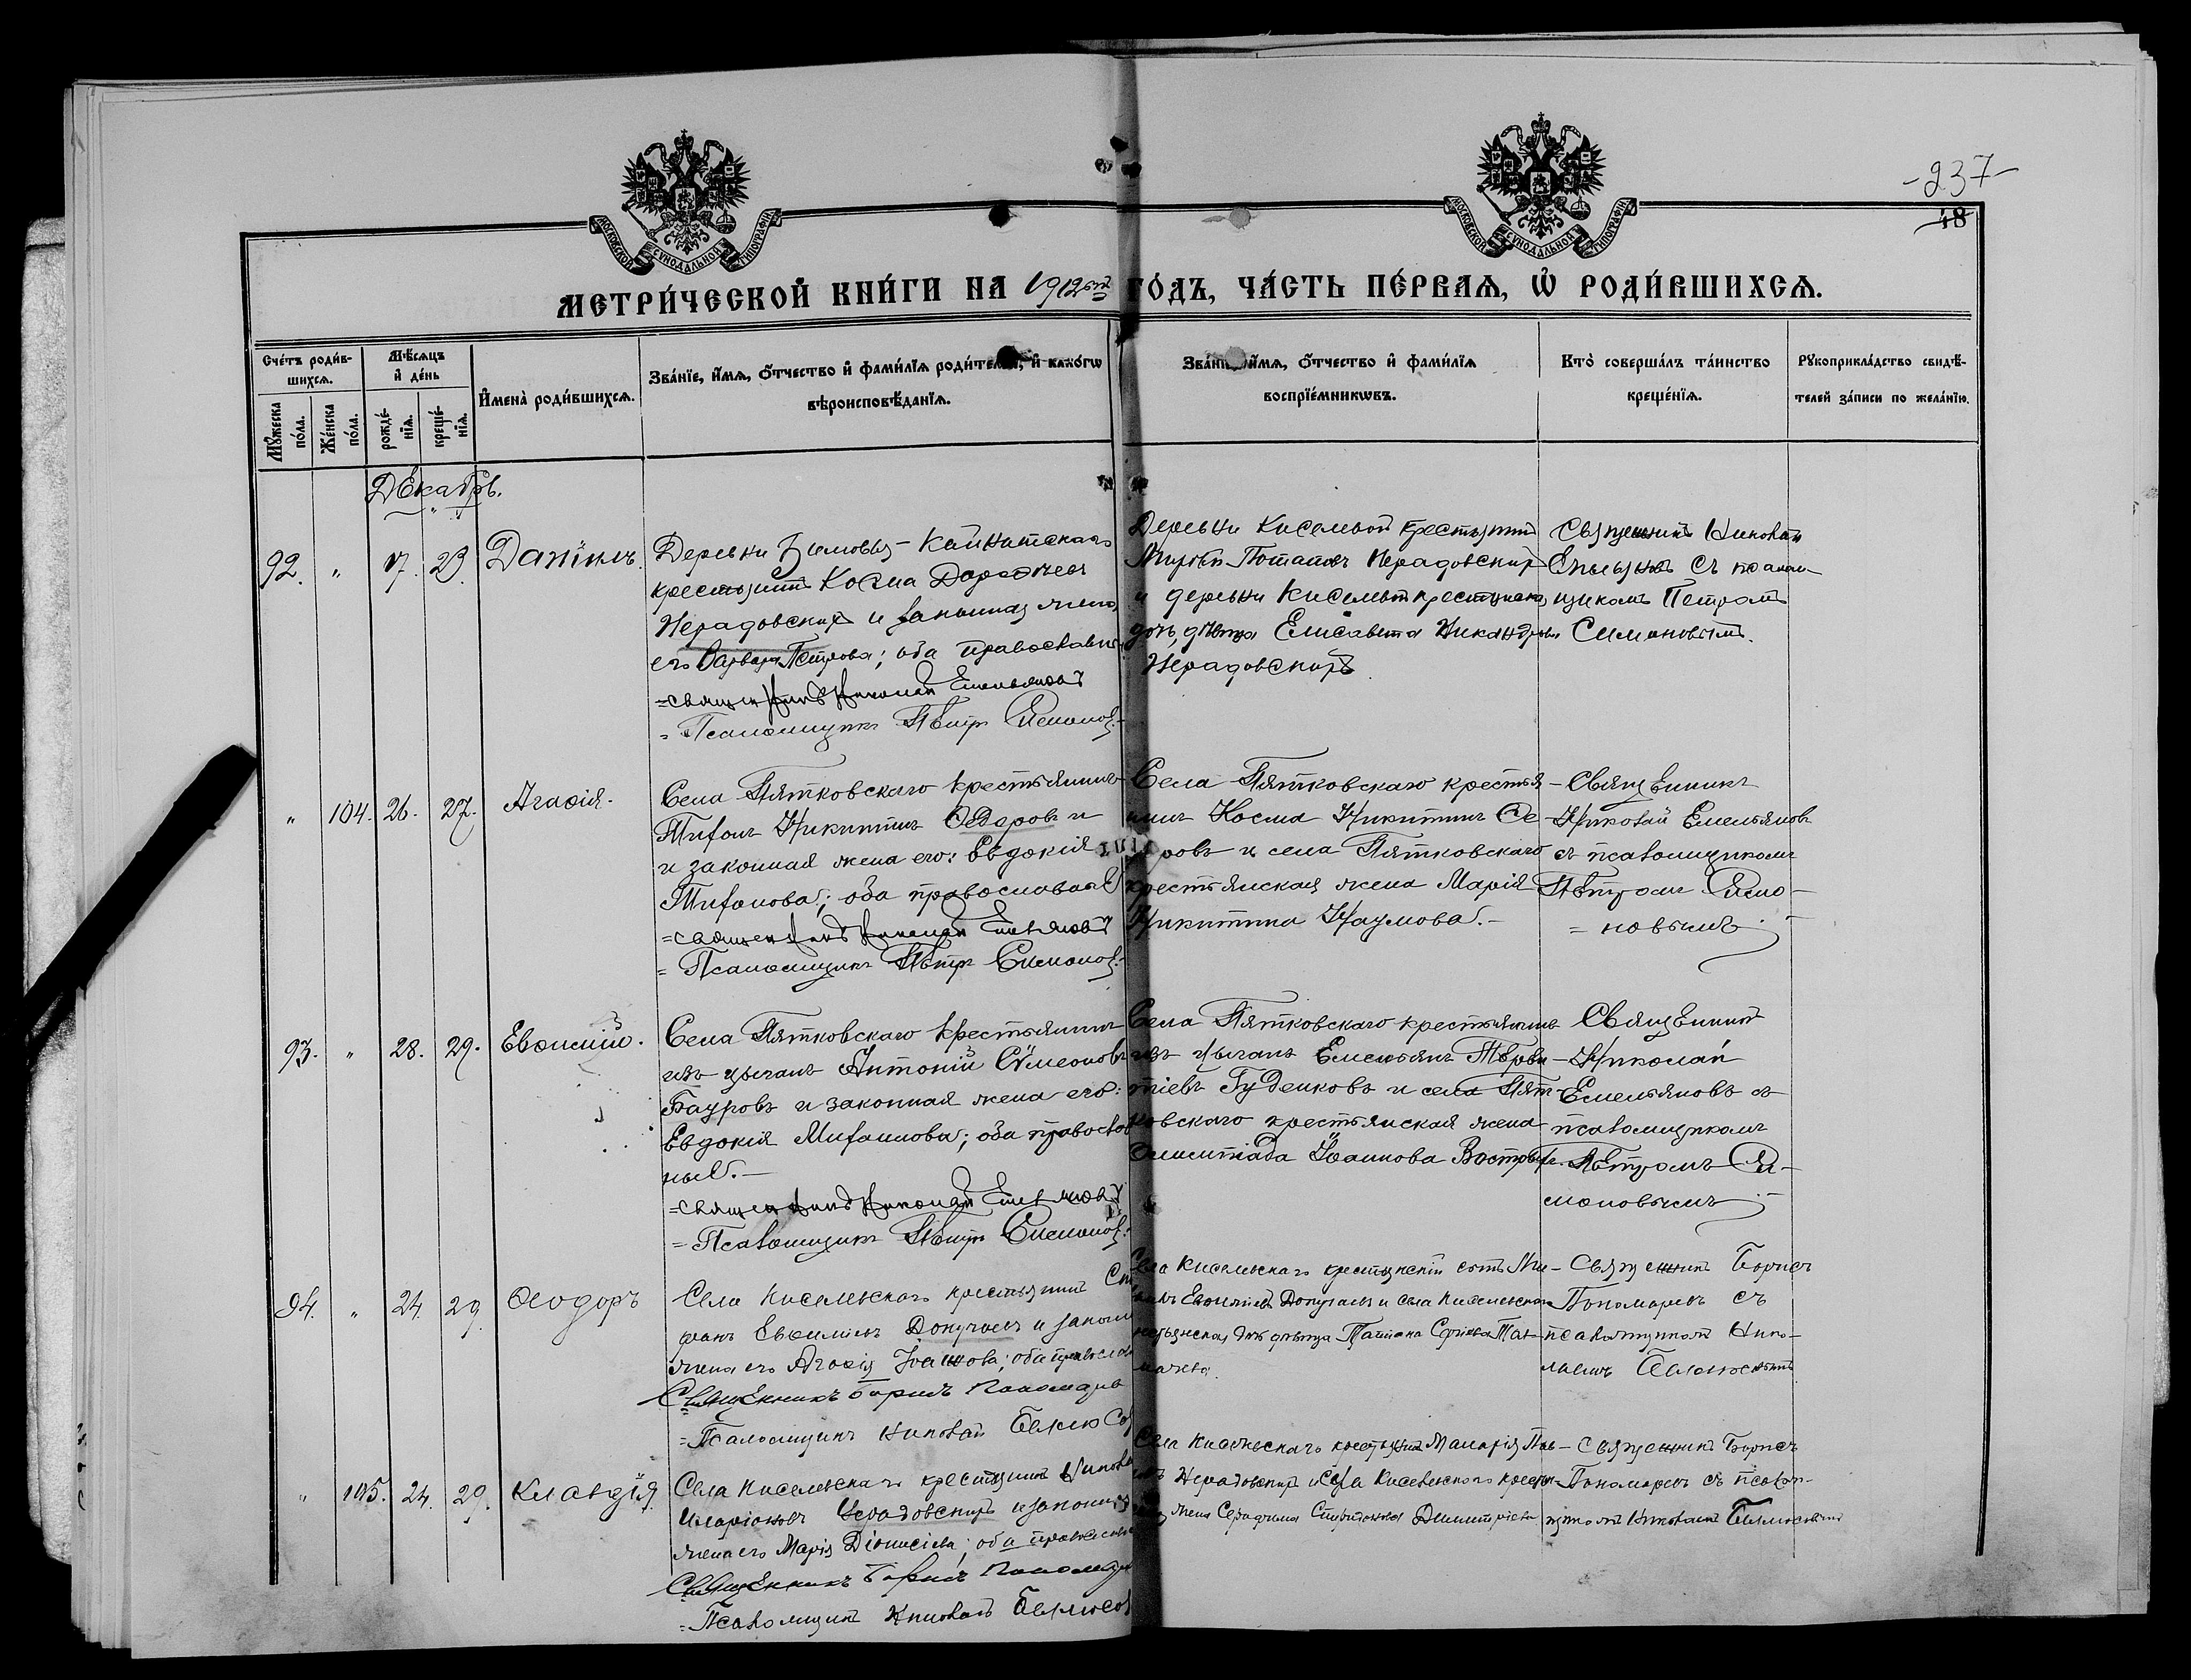 -237-
48
МОСКОВСКОЙ СѴНОДАЛЬНОЙ ТИПОГРАФІИ
МОСКОВСКОЙ СѴНОДАЛЬНОЙ ТИПОГРАФІИ
МЕТРИ́ЧЕСКОЙ КНИ́ГИ НА 1912ый ГО́ДЪ, ЧА́СТЬ ПЕ́РВАѦ, Ѡ҆ РОДИ́ВШИХСѦ.
Сче́тъ роди́в-
шихсѧ.
Мѣ́сѧцъ
и҆ де́нь
Мꙋ́жеска по́ла.
Же́нска по́ла.
рожде́нїѧ.
креще́нїѧ.
И҆мена̀ роди́вшихсѧ.
Зва́нїе, и҆́мѧ, ѻ҆́тчество и҆ фами́лїѧ роди́телей, и҆ како́гѡ
вѣроисповѣ́данїѧ.
Зва́нїе, и҆́мѧ, ѻ҆́тчество и҆ фами́лїѧ
воспрїе́мникѡвъ.
Кто̀ соверша́лъ та́инство
креще́нїѧ.
Рꙋкоприкла́дство свидѣ́-
телей за́писи по жела́нїю.
Декабрь.
92. " 17. 23. Даніилъ.
Деревни
крестьянинъ Косма Дороѳеевъ
Нерадовскихъ и законная жена
его Варвара Петрова; оба православн.
=Священникъ Николай Емельяновъ
=Псаломщикъ Петръ Симоновъ.
Деревни Киселевой крестьянинъ
Потаповъ Нерадовскихъ
и деревни Киселевой крестьянская
дочь, дѣвица Елисавета Никандрова
Нерадовскихъ
Священникъ Николай
Емельяновъ съ псалом-
щикомъ Петромъ
Симоновымъ.
" 104. 26. 27. Агаѳія.
Села Пятковскаго крестьянинъ
Тиѳонъ Никитинъ Ѳедоровъ и
и законная жена его: Евдокія
Тиѳонова; оба православные
=Священникъ Николай Емельяновъ
=Псаломщикъ Петръ Симоновъ.
Села Пятковскаго крестья-
нинъ Косма Никитинъ Ѳе-
доровъ и села Пятковскаго
крестьянская жена Марія
Никитина Наумова.-
Священникъ
Николай Емельяновъ
съ псаломщикомъ
Петромъ Симо-
=новымъ.-
93. " 28. 29. Евѳимій.
Села Пятковскаго крестьянинъ
изъ цыганъ Антоній Сѵмеоновъ
Бауровъ и законная жена его:
Евдокія Михаилова; оба православ
ные.-
=Священникъ Николай Емельяновъ
=Псаломщикъ Петръ Симоновъ.
Села Пятковскаго крестьянинъ
изъ цыганъ Емельянъ
Гуденковъ и села Пят-
ковскаго крестьянская жена
Іоаннова
Священникъ
Николай
Емельяновъ съ
псаломщикомъ
Петромъ Си-
моновымъ.-
94. " 24. 29. Ѳеодоръ
Села Киселевскаго крестьянинъ Сте
фанъ Евѳиміевъ Допучаевъ и законн
жена его Агаѳія Іоаннова; оба православ
Священникъ Борисъ Пономаревъ
=Псаломщикъ Николай
Села Киселевскаго крестьянскій сынъ
Евѳиміевъ Допучаевъ и села Киселевскаго
крестьянская дочь дѣвица Татіана Сергіева
Священникъ Борисъ
Пономаревъ съ
псаломщикомъ Нико-
лаемъ
" 105. 24. 29. Клавдія
Села Киселевскаго крестьянинъ Николай
Иларіоновъ Нерадовскихъ и законная
жена его Марія Діонисіева; оба православн
Священникъ Борисъ Пономаревъ
=Псаломщикъ Николай
Села Киселевскаго крестьянинъ
Нерадовскихъ и села Киселевскаго крестьян-
жена Серафима Спиридонова Димитріева
Священникъ Борисъ
Пономаревъ съ псалом-
щикомъ Николаемъ